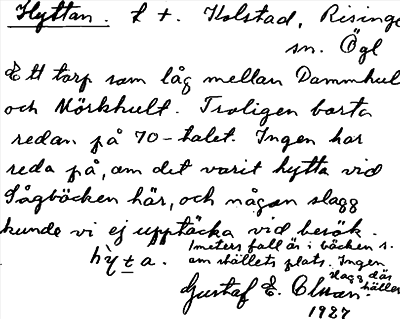 Hyttan. L t. Kolstad, Risinge
sn. Ögl
Ett torp som låg mellan Dammhult
och Mörkhult. Troligen borta
redan på 70-talet. Ingen har
reda på, om det varit hytta vid
Sågbäcken här, och någon slagg
kunde vi ej upptäcka vid besök.
hỳta. 1 meters fall är i bäcken s.
om ställets plats. Ingen
slagg där
heller
Gustaf E.
1927